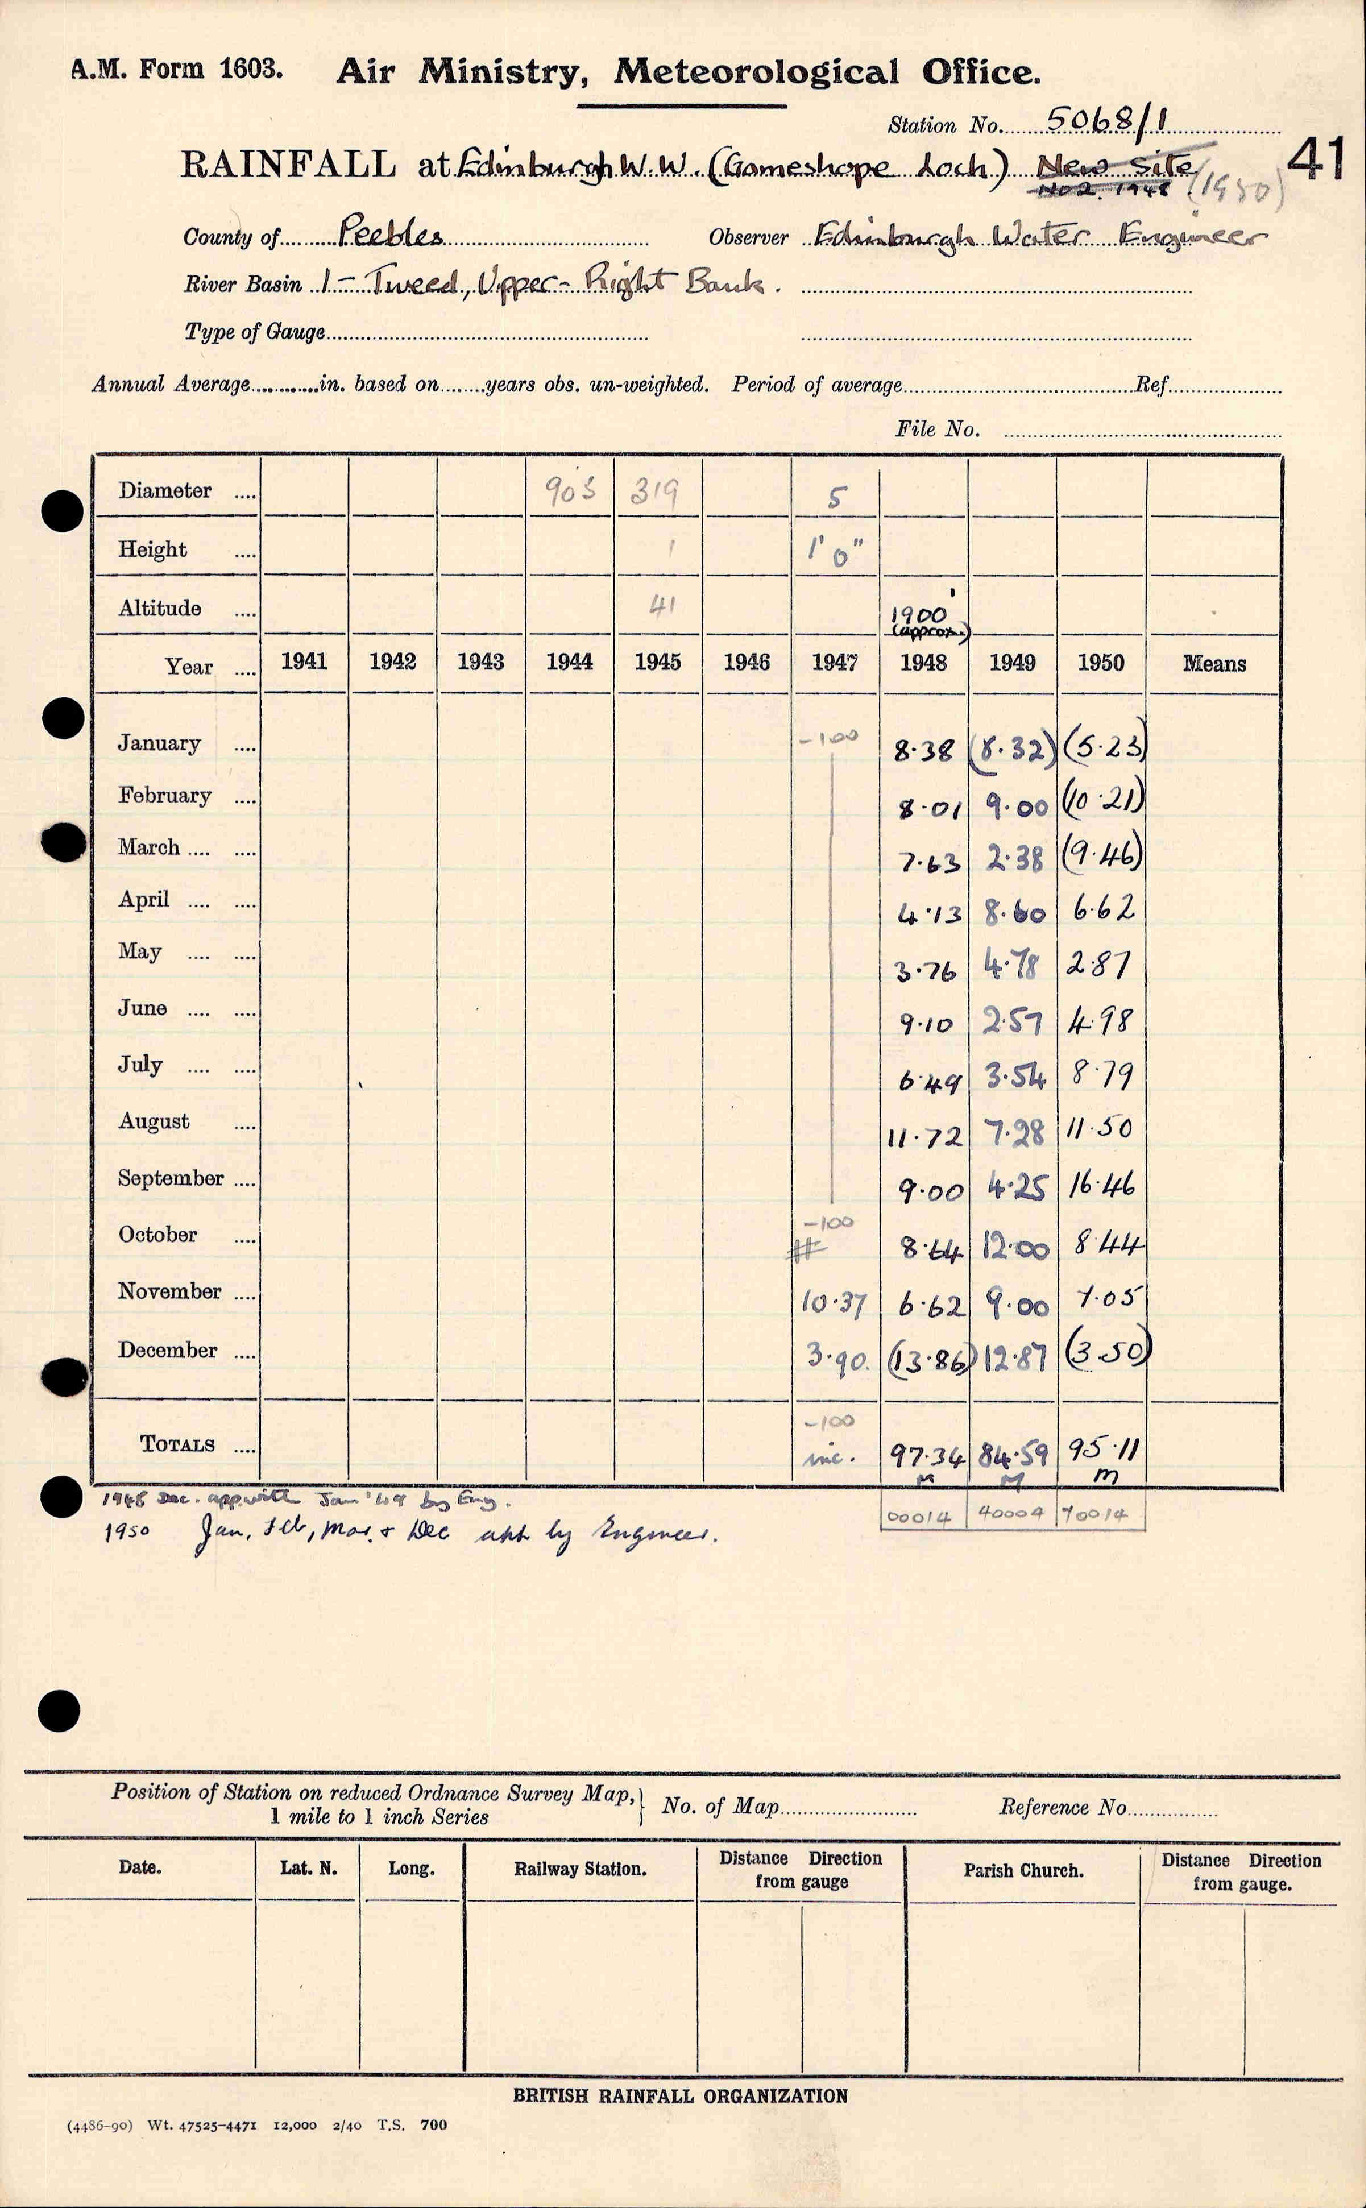 A.M. Form 1603. Air Ministry, Meteorological Office.
Station No. 5068/1
RAINFALL at Edinburgh W.W. (Gameshope Loch) New Site 41
No 2. 1948 (1950)
County of Peebles Observer Edinburgh Water Engineer
River Basin 1 - Tweed, Upper - Right Bank.
Type of Gauge
Annual Average in. based on years obs. un-weighted. Period of average Ref
File No.
Diameter .... 903 319 5
Height .... 1 1' 0"
Altitude .... 41 1900'
(approx.)
Year .... 1941 1942 1943 1944 1945 1946 1947 1948 1949 1950 Means
January .... -100 8.38 (8.32) (5.23)
February .... 8.01 9.00 (10.21)
March .... .... 7.63 2.38 (9.46)
April .... .... 4.13 8.60 6.62
May .... .... 3.76 4.78 2.87
June .... .... 9.10 2.57 4.98
July .... .... 6.49 3.54 8.79
August .... 11.72 7.28 11.50
September .... 9.00 4.25 16.46
October .... -100 # 8.64 12.00 8.44
November .... 10.37 6.62 9.00 7.05
December .... 3.90. (13.86) 12.87 (3.50)
-100
TOTALS .... inc. 97.34 84.59 95.11
M M M
1948 Dec. app. with Jan '49 by Eng.
00014 40004 70014
1950 Jan, Feb, Mar. & Dec app by Engineer.
Position of Station on reduced Ordnance Survey Map, } No. of Map Reference No.
1 mile to 1 inch Series
Date. Lat. N. Long. Railway Station. Distance Direction from gauge Parish Church. Distance Direction from gauge.
BRITISH RAINFALL ORGANIZATION
(4486-90) Wt. 47525-4471 12,000 2/40 T.S. 700